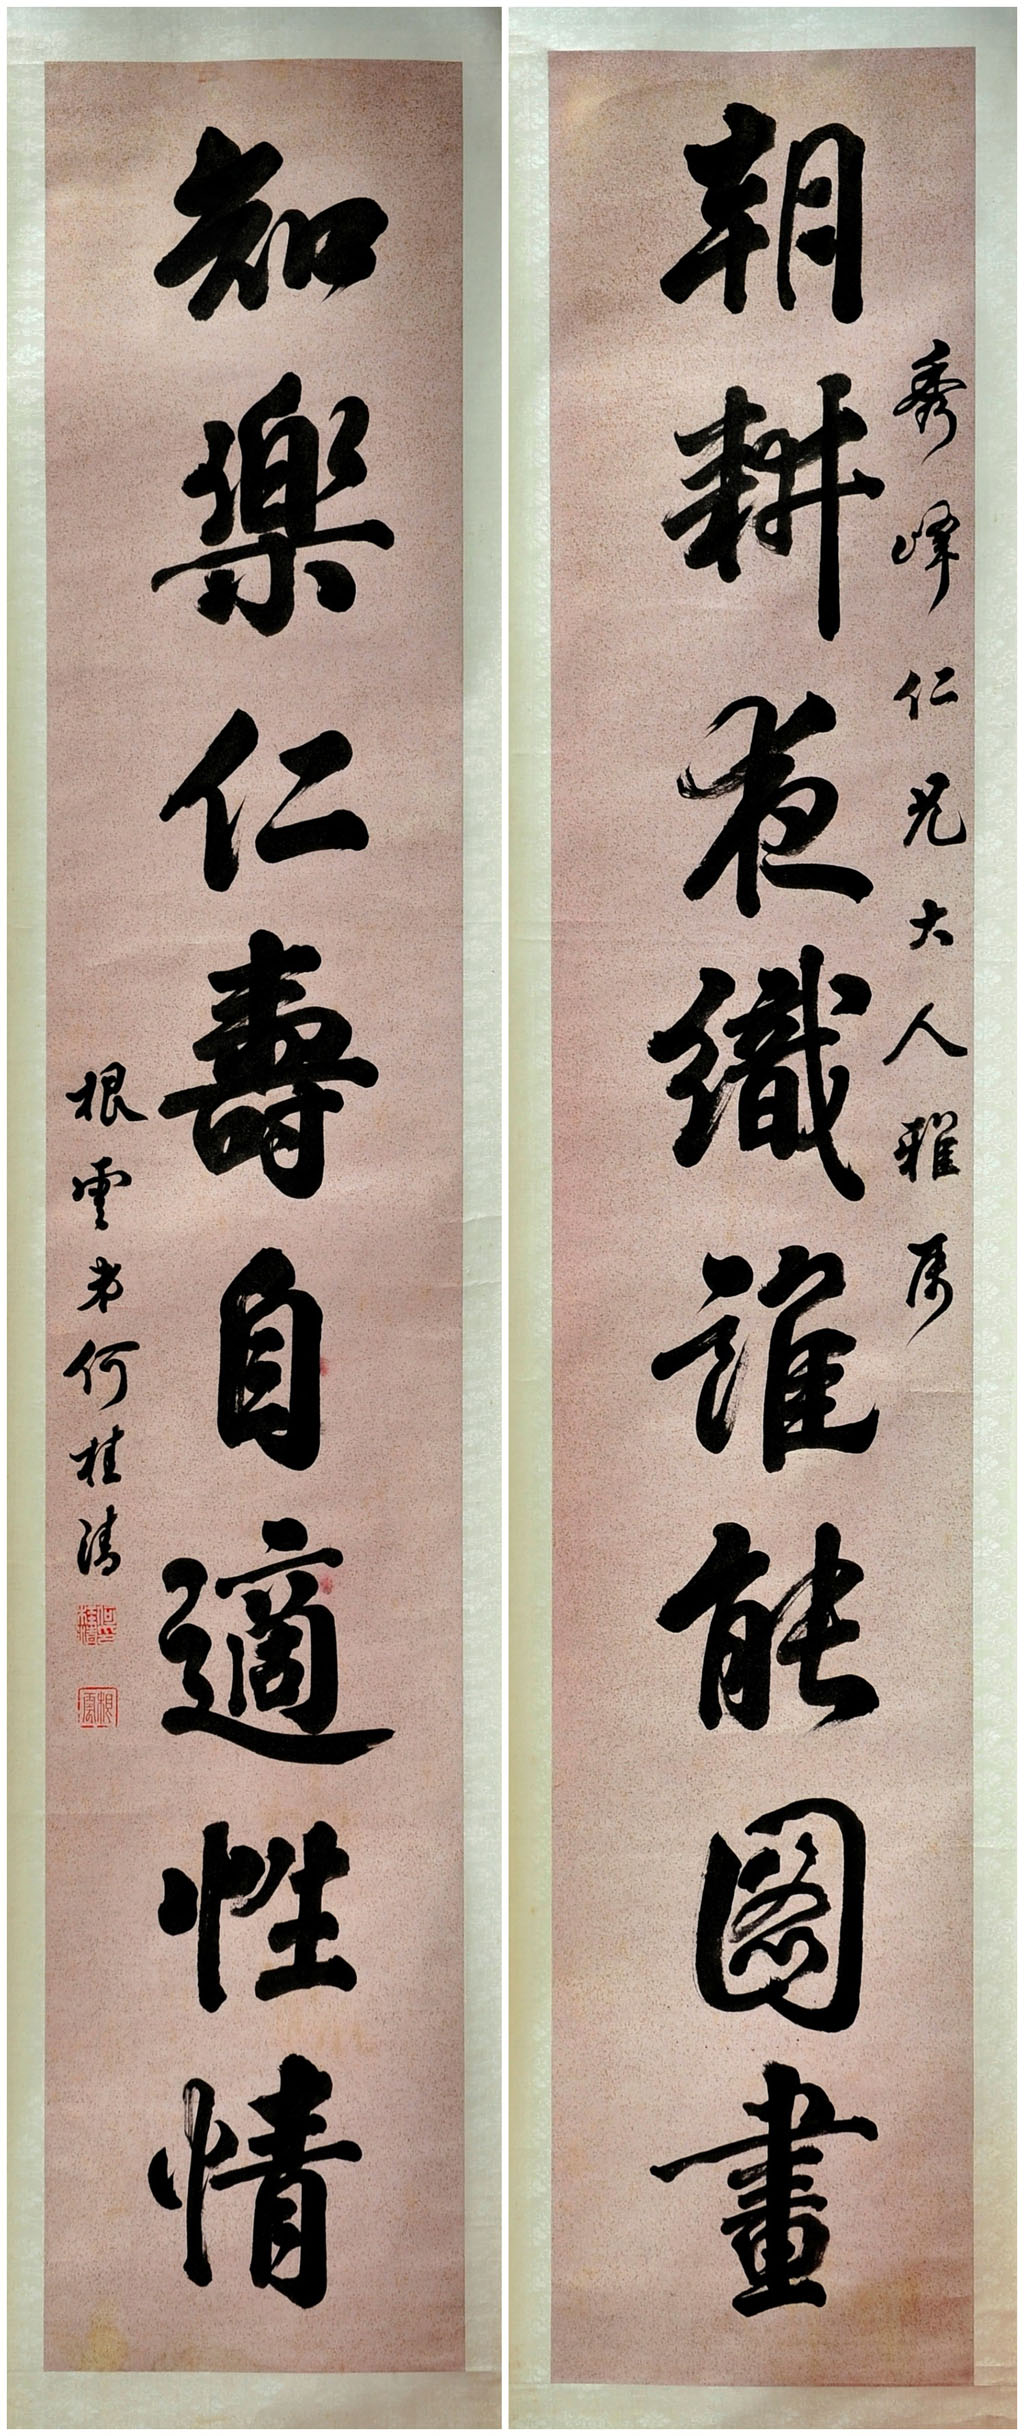 秀峰仁兄大人雅属
朝耕夜織誰能圖畫
知樂仁壽自適性情
根雲弟何桂清
何桂清
根雲